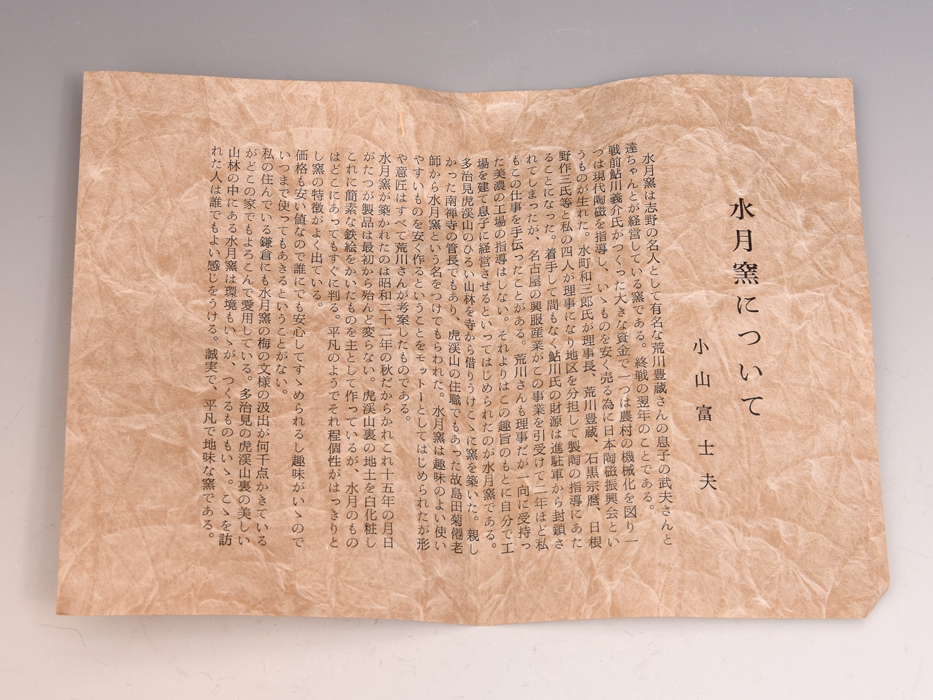 水月窯について
小山富士夫
水月窯は志野の名人として有名な荒川豊蔵さんの息子の武夫さんと
達ちゃんとが経営している窯である。終戦の翌年のことである。
戦前鮎川義介氏がつくった大きな資金で一つは農村の機械化を図り一
つは現代陶磁を指導し、いゝものを安く売る為に日本陶磁振興会とい
うものが生れた。水町和三郎氏が理事長、荒川豊蔵、石黒宗麿、日根
野作三氏等と私の四人が理事になり地区を分担して製陶の指導にあた
ることになった。着手して間もなく鮎川氏の財源は進駐軍から封鎖さ
れてしまったが、名古屋の興服産業がこの事業を引受けて二年ほど私
もこの仕事を手伝ったことがある。荒川さんも理事だが一向に受持っ
た美濃の工場の指導はしない。それよりはこの趣旨のもとに自分で工
場を建て息子に経営させるといってはじめられたのが水月窯である。
多治見虎渓山のひろい山林を寺から借りうけこゝに窯を築いた。親し
かった南禅寺の管長でもあり、虎渓山の住職でもあった故島田菊僊老
師から水月窯という名をつけてもらわれた。水月窯は趣味のよい使い
やすいものを安く作るということをモットーとしてはじめられたが形
や意匠はすべて荒川さんが考案したものである。
水月窯が築かれたのは昭和二十二年の秋だからかれこれ十五年の月日
がたつが製品は最初から殆んど変らない。虎渓山裏の地土を白化粧し
これに簡素な鉄絵をかいたものを主として作っているが、水月のもの
はどこにあってもすぐに判る。平凡のようでそれ程個性がはっきりと
し窯の特徴がよく出ている。
価格も安い値なので誰にでも安心してすゝめられるし趣味がいゝので
いつまで使ってもあきるということがない。
私の住んでいる鎌倉にも水月窯の梅の文様の汲出が何千点かきている
がどこの家でもよろこんで愛用している。多治見の虎渓山裏の美しい
山林の中にある水月窯は環境もいゝが、つくるものもいゝ。こゝを訪
れた人は誰でもよい感じをうける。誠実で、平凡で地味な窯である。